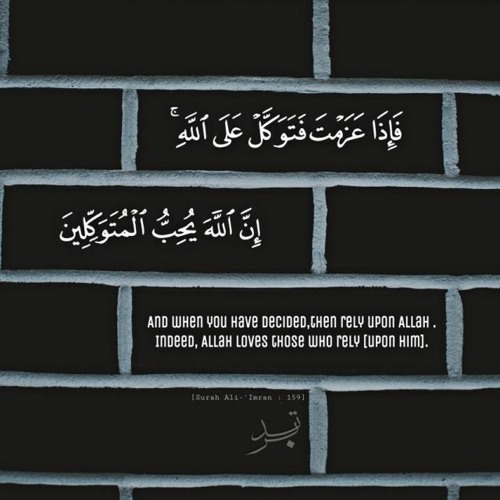 فَإِذَا عَزَمْتَ فَتَوَكَّلْ عَلَى ٱللَّهِ ۚ
إِنَّ ٱللَّهَ يُحِبُّ ٱلْمُتَوَكِّلِينَ
And when you have decided,then rely upon Allah .
Indeed, Allah loves those who rely [upon Him].
[Surah Ali-'Imran : 159]
تدبر